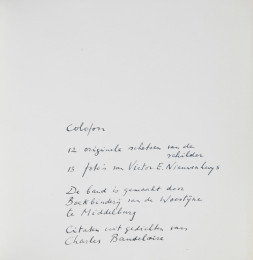 Colofon
12 originele schetsen van de
schilder
13 foto's van Victor E. Nieuwenhuys
De band is gemaakt door
Boekbinderij van de Woestijne
te Middelburg
Citaten uit gedichten van
Charles Baudelaire